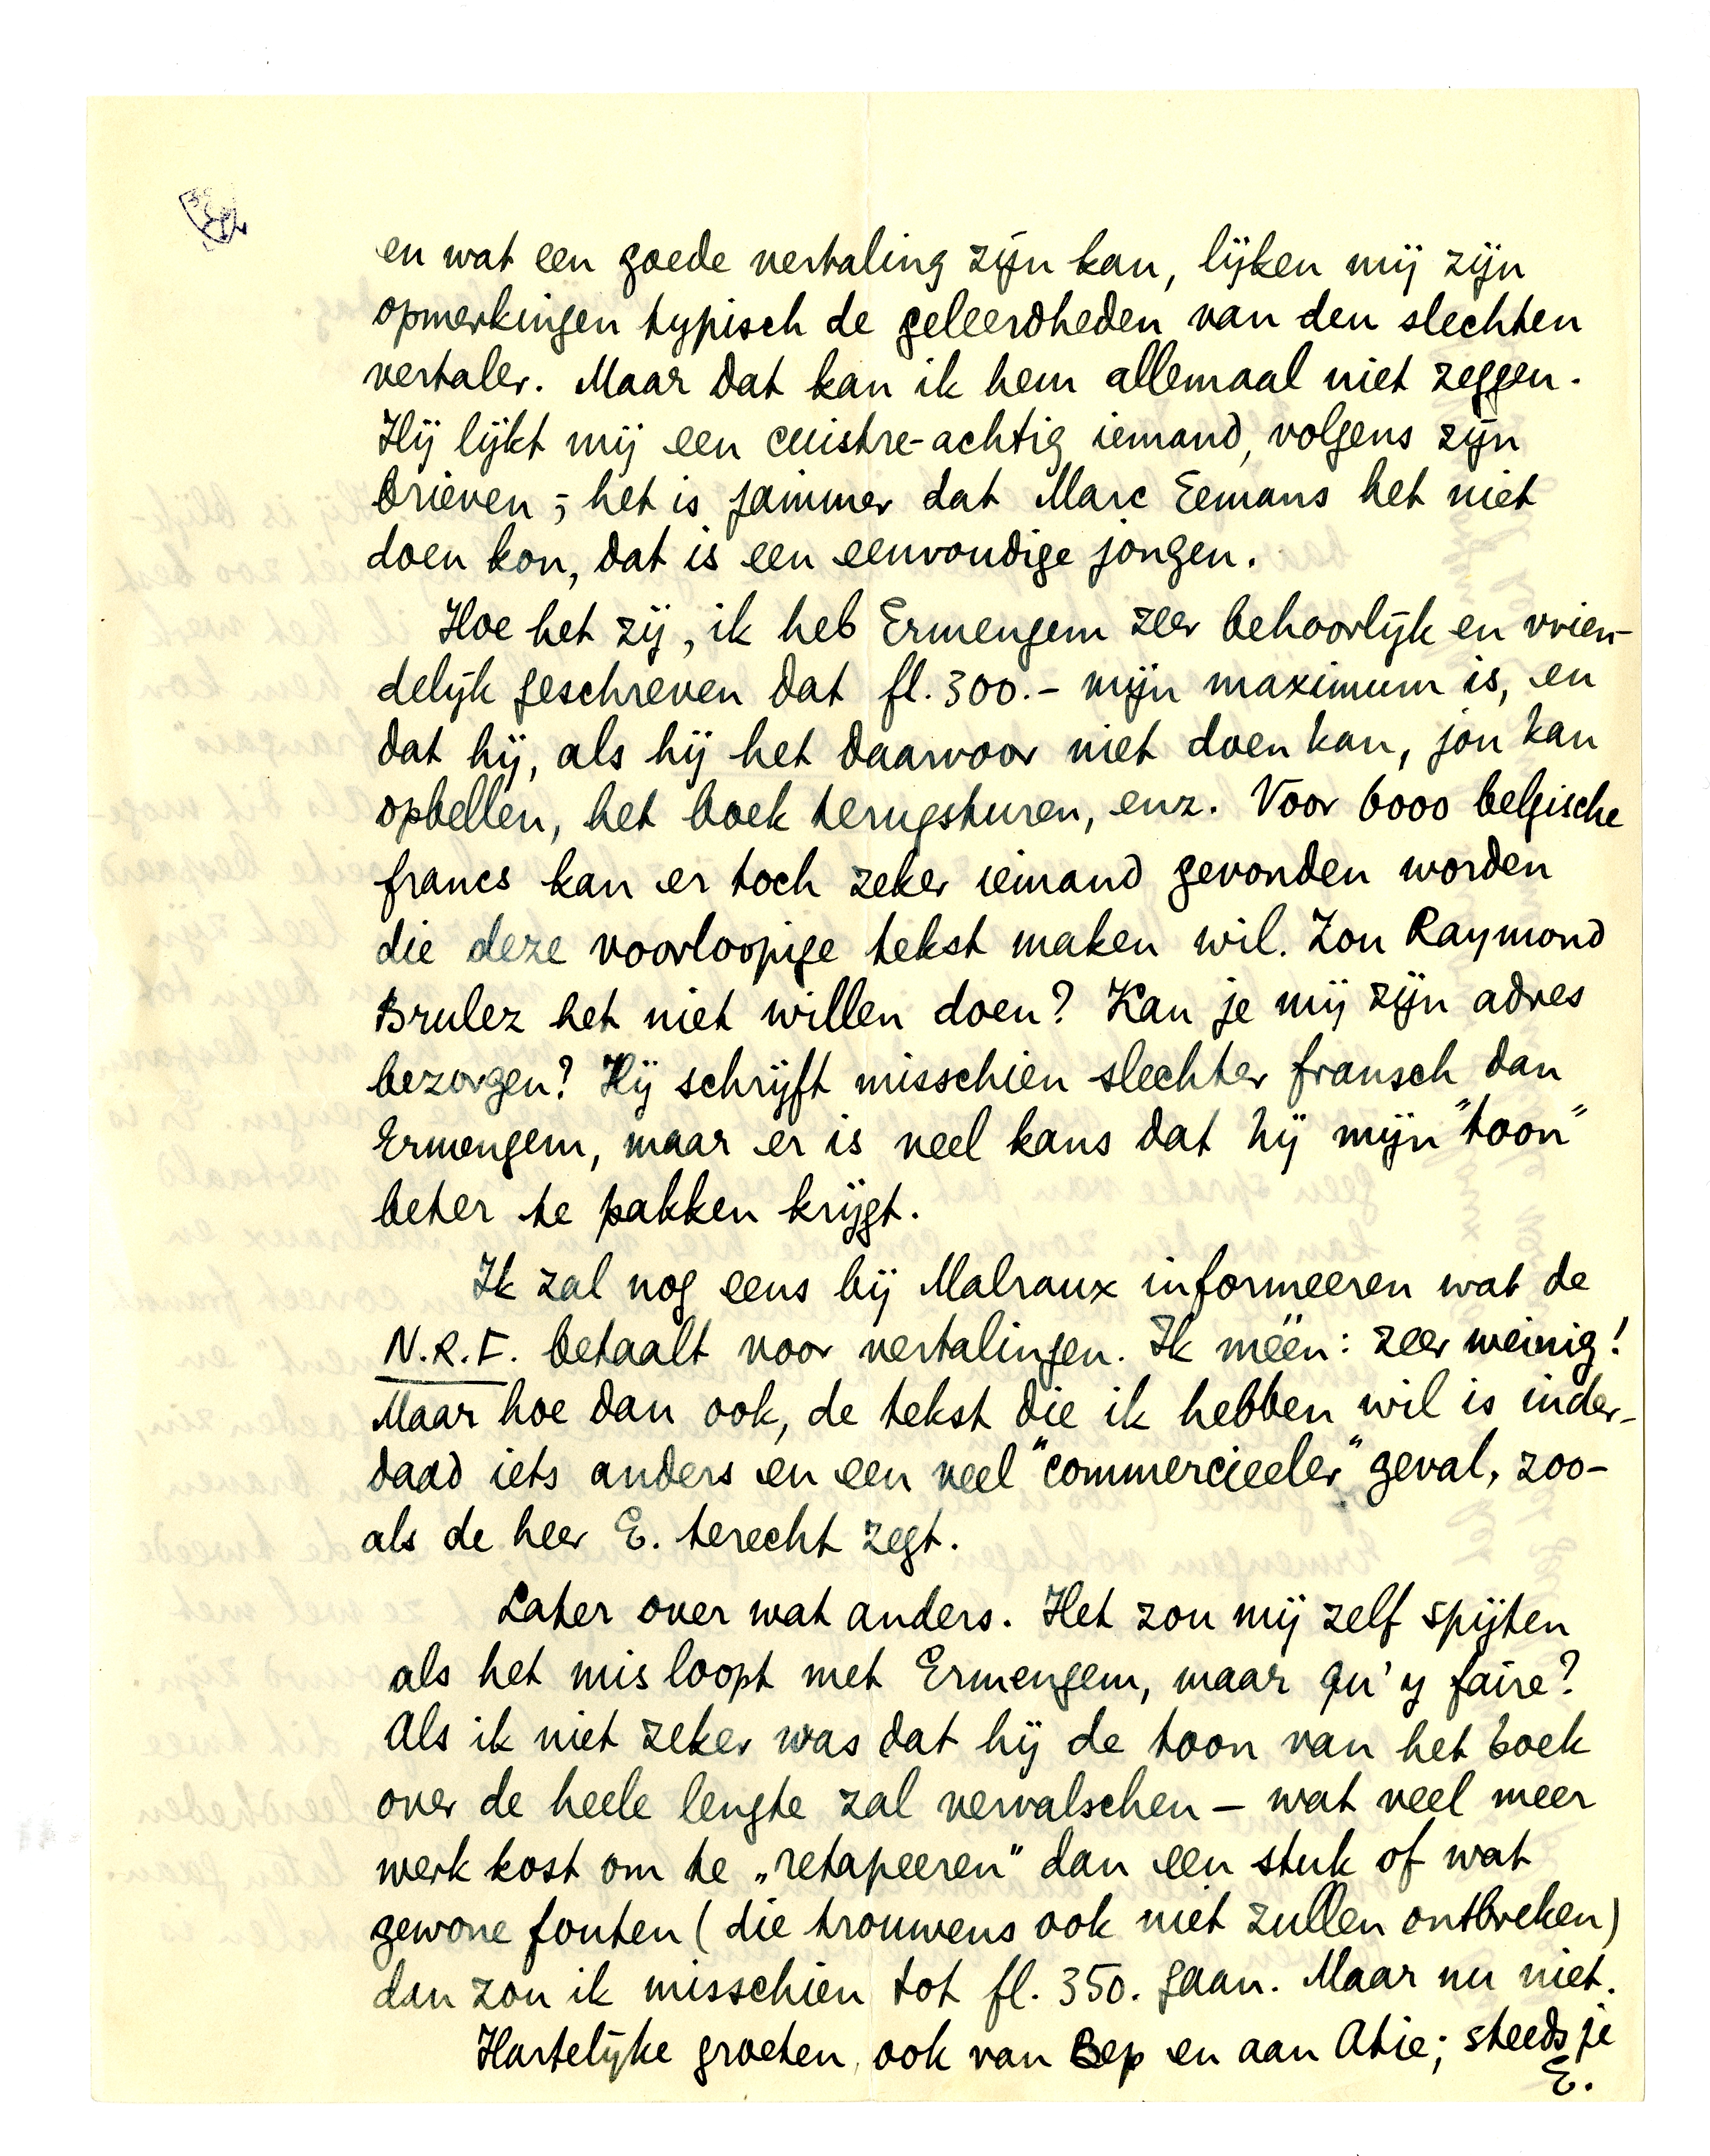 en wat een goede vertaling zijn kan, lijken mij zijn
opmerkingen typisch de geleerdheden van den slechten
vertaler. Maar dat kan ik hem allemaal niet zeggen.
Hij lijkt mij een cuistre-achtig iemand, volgens zijn
brieven; het is jammer dat Marc Eemans het niet
doen kon, dat is een eenvoudige jongen.
Hoe het zij, ik heb Ermengem zeer behoorlijk en vrien-
delijk geschreven dat fl. 300.- mijn maximum is, en
dat hij, als hij het daarvoor niet doen kan, jou kan
opbellen, het boek terugsturen, enz. Voor 6000 belgische
francs kan er toch zeker iemand gevonden worden
die deze voorloopige tekst maken wil. Zou Raymond
Brulez het niet willen doen? Kan je mij zijn adres
bezorgen? Hij schrijft misschien slechter fransch dan
Ermengem, maar er is veel kans dat hij mijn "toon"
beter te pakken krijgt.
Ik zal nog eens bij Malraux informeeren wat de
N.R.F. betaalt voor vertalingen. Ik méén: zeer weinig!
Maar hoe dan ook, de tekst die ik hebben wil is inder-
daad iets anders en een veel "commercieeler" geval, zoo-
als de heer E. terecht zegt.
Later over wat anders. Het zou mij zelf spijten
als het mis loopt met Ermengem, maar qu'y faire?
Als ik niet zeker was dat hij de toon van het boek
over de heele lengte zal vervalschen – wat veel meer
werk kost om te „retapeeren" dan een stuk of wat
gewone fouten (die trouwens ook niet zullen ontbreken)
dan zou ik misschien tot fl. 350. gaan. Maar nu niet.
Hartelijke groeten, ook van Bep en aan Atie; steeds je
E.